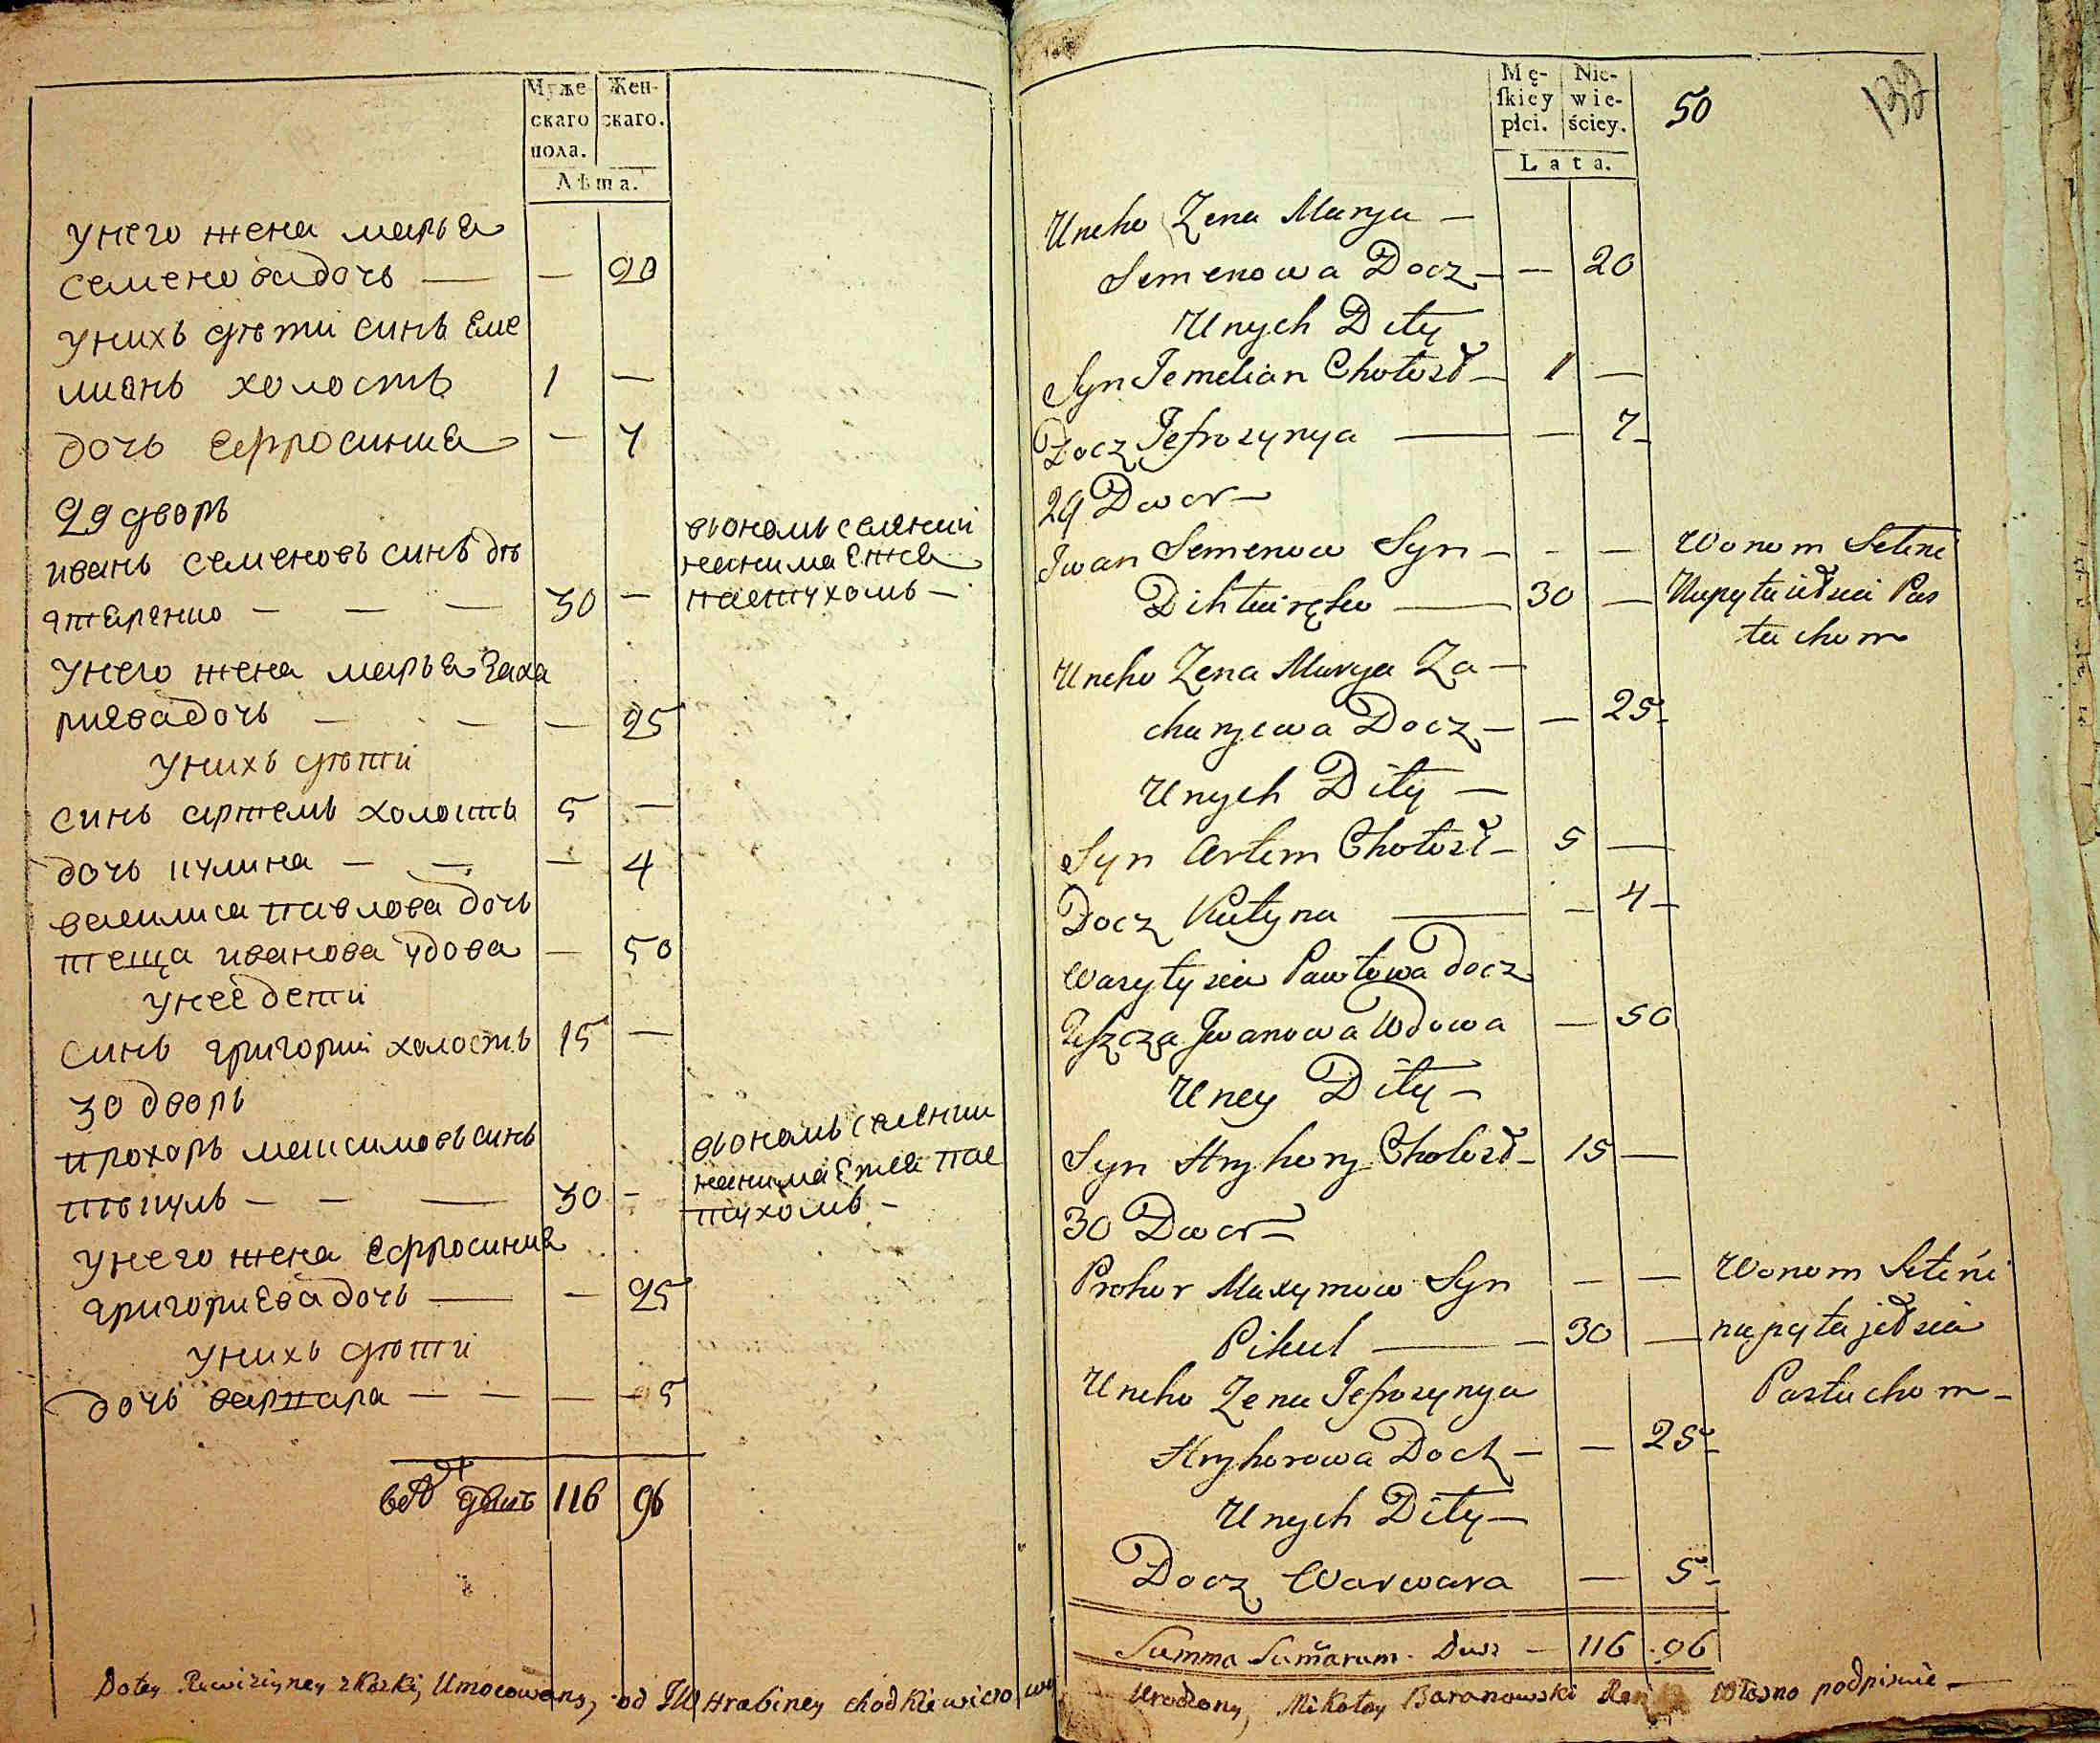 Муже
скаго
пола.
Жен-
скаго.
Лѣта.
унего жена марья
семеновадочь — — 20
унихъ дѣти синъ еме
лианъ холостъ 1 —
дочь ефросиния — 7
29 дворъ
иванъ семеновъ синъ дѣ
гтяренко — — — 30 —
вьономъ селении
нанимаетса
пастухомъ —
унего жена марья Заха
риевадочь — — — 25
унихъ дѣти
синъ артемъ холостъ 5 —
дочь кулина — — — 4
василиса павлова дочь
теща иванова удова — 50
унее дети
синъ григорий холостъ 15 —
30 дворъ
прохоръ максимовъ синъ
пѣкулъ — — — 30 —
вьономъ селении
нанимаетса пас
тухомъ —
унего жена ефросиния
григориева дочь — — 25
унихъ дѣти
дочь варвара — — — 5
душъ 116 96
Mę-
skiey
płci.
Nie-
wie-
ściey.
Lata.
50
132
Uneho Zena Marya —
Semenowa Docz — — 20
Unych Dity
Syn Jemelian Chołost — 1 —
Docz Jefrosynya — — 7 —
29 Dwor —
Jwan Semenow Syn — - —
Dihtiaręko — 30 —
Wonom Seleni
Napytaietsia Pas
tuchom
Uneho Zena Marya Za —
charjewa Docz — — 25 —
Unych Dity —
Syn Artem Chołost — 5 —
Docz Kulyna — — 4 —
Wasylysia Pawłowa docz
Teszcza Jwanowa Wdowa — 50
Uney Dity —
Syn Hryhory Chołost — 15 —
30 Dwor —
Prohor Maxymow Syn — —
Pikul — — 30 —
Wonom Seleni
napytajetsia
Pastuchom —
Uneho Zena Jefrosynya
Hryhorowa Docz — — 25 —
Unych Dity —
Docz Warwara — 5 —
Summa Sumarum. Dusz — 116 . 96
Dotey Rewizyiney skazki, Umocowany, od JW Hrabiney Chodkiewiczowey Urodzony, Mikołay Baranowski Własno podpisuie —